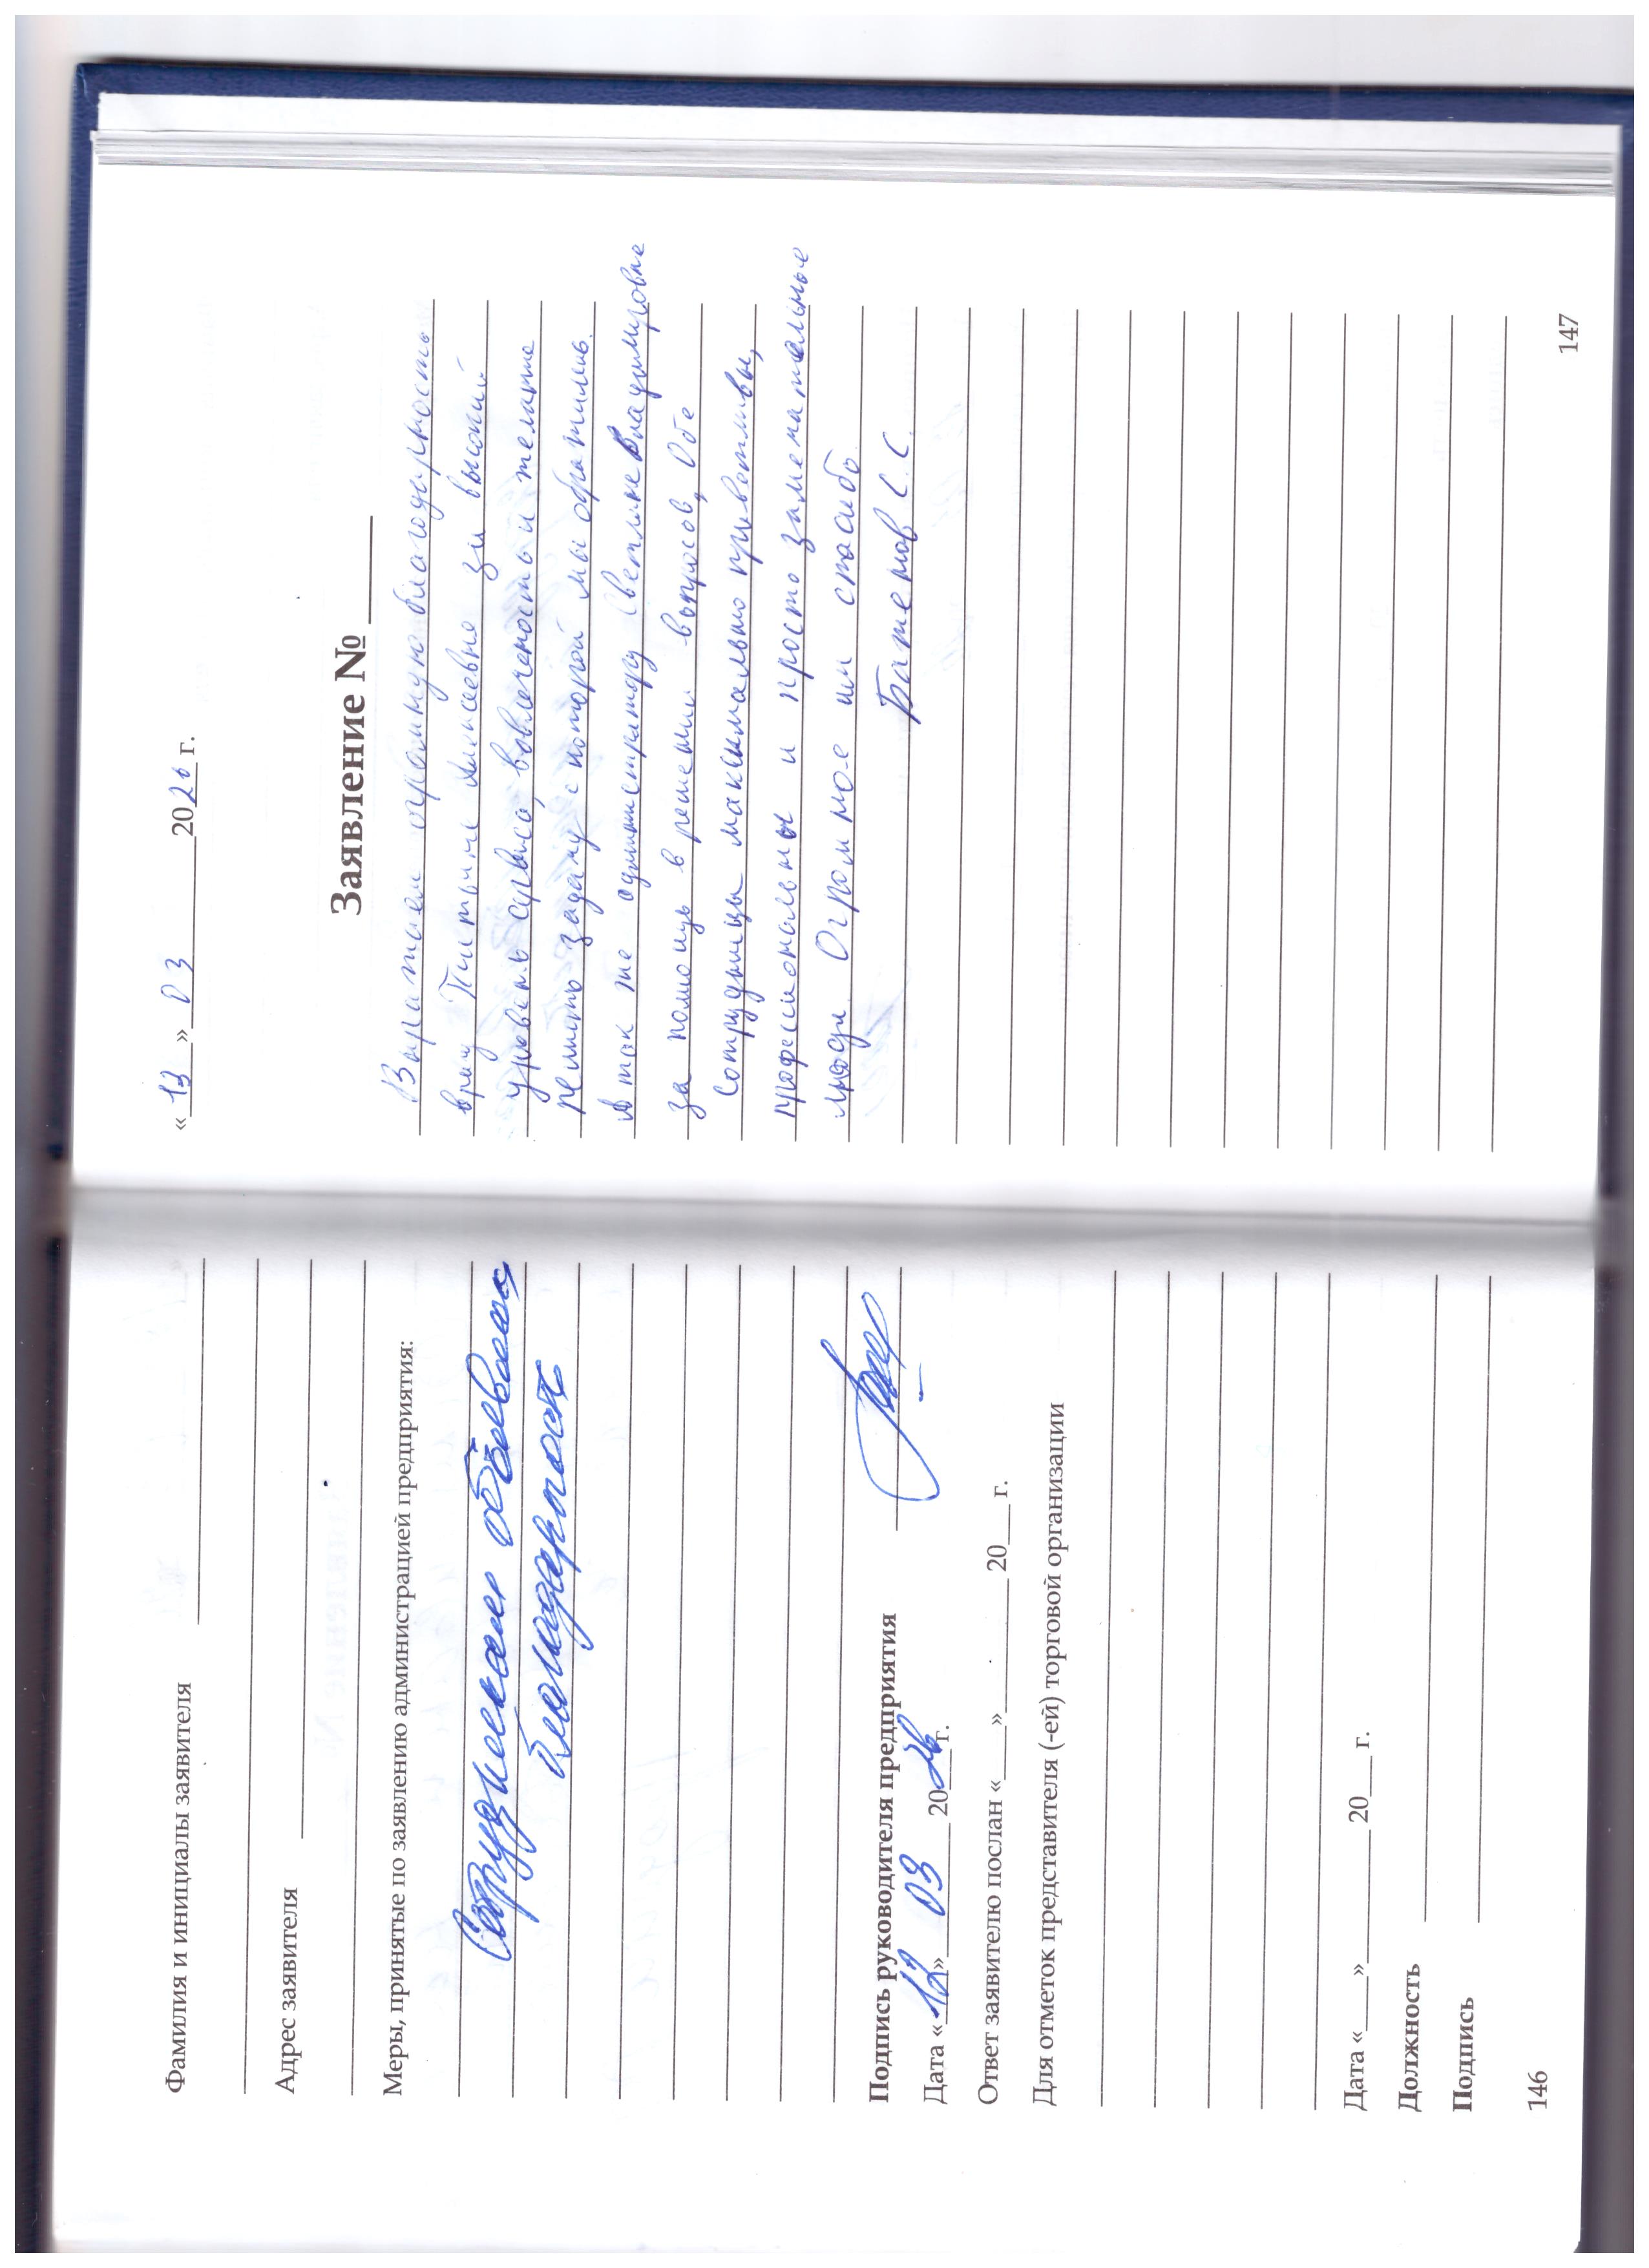 Фамилия и инициалы заявителя
Адрес заявителя
Меры, принятые по заявлению администрацией предприятия:
Сотрудникам объявлена
благодарность
Подпись руководителя предприятия
Дата «13» 03 2026 г.
Ответ заявителю послан «___»________ 20___ г.
Для отметок представителя (-ей) торговой организации
Дата «___»________ 20___ г.
Должность
Подпись
146
«13» 03 2026 г.
Заявление № ____
Выражаем огромную благодарность
врачу Алексеевне за высокий
уровень сервиса, вовлеченость и желание
решить задачу с которой мы обратились.
А так же администратору Светлане Владимировне
за помощь в решении вопросов, Обе
Сотрудницы максимально приветливы,
профессиональны и просто замечательные
люди. Огромное им спасибо
С.С.
147